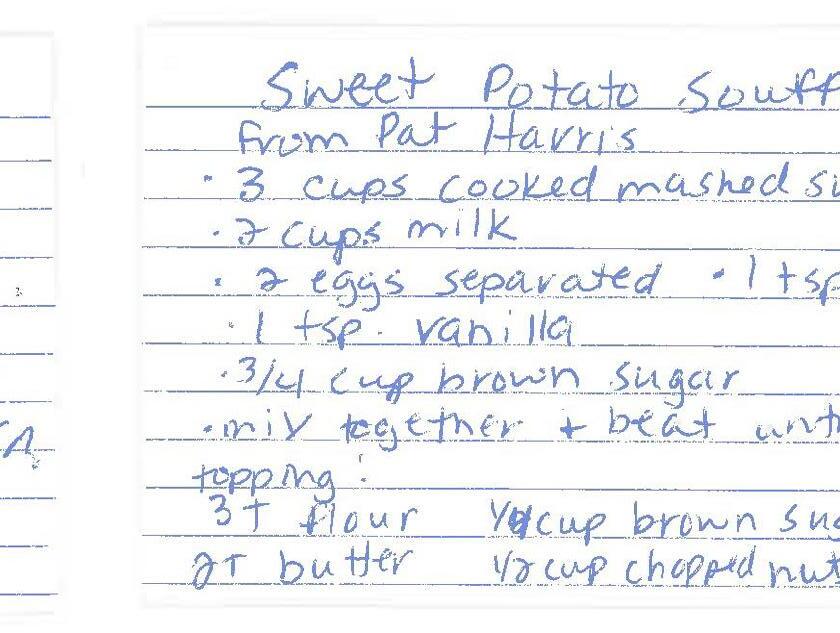 Sweet Potato Souff
from Pat Harris
· 3 cups cooked mashed
· 2 cups milk
· 2 eggs separated · 1 tsp
· 1 tsp. vanilla
· 3/4 cup brown sugar
· mix together + beat unt
topping:
3T flour 1/4 cup brown sug
2T butter 1/2 cup chopped nut